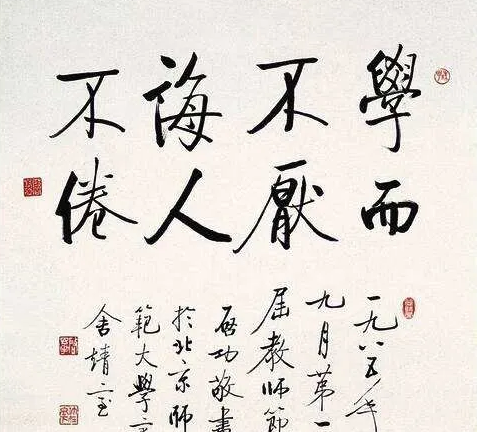 學而
不厭
誨人
不倦
一九八五年
九月第一
屆教師節
启功敬書
於北京師
範大學
舍靖室